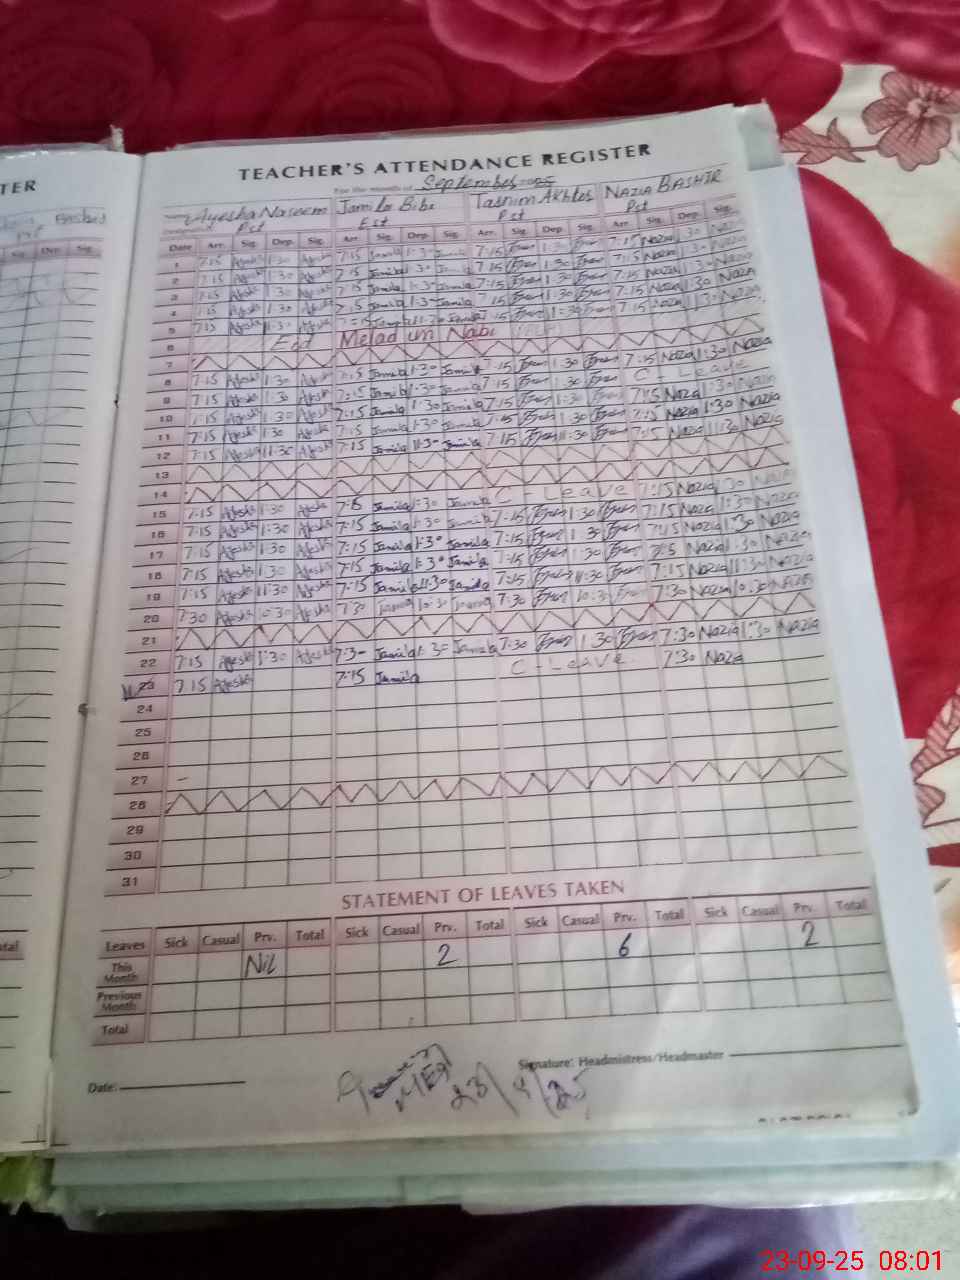 TER
TEACHER'S ATTENDANCE REGISTER
For the month of September 2025
Name Ayesha Naseem Jamila Bibi Tasnim Akhter NAZIA BASHIR
Pst Est Pst Pst
Date Arr. Sig. Dep. Sig. Arr. Sig. Dep. Sig. Arr. Sig. Dep. Sig. Arr. Sig. Dep. Sig.
1 7:15 Ayesha 1:30 Ayesha 7:15 Jamila 1:30 Jamila 7:15 1:30 7:15 Nazia 1:30 Nazia
2 7:15 Ayesha 1:30 Ayesha 7:15 Jamila 1:30 Jamila 7:15 1:30 7:15 Nazia 1:30 Nazia
3 7:15 Ayesha 1:30 Ayesha 7:15 Jamila 1:30 Jamila 7:15 1:30 7:15 Nazia 1:30 Nazia
4 7:15 Ayesha 1:30 Ayesha 7:15 Jamila 1:30 Jamila 7:15 1:30 7:15 Nazia 1:30 Nazia
5 7:15 Ayesha 11:30 Ayesha 7:15 Jamila 11:30 Jamila 7:15 11:30 7:15 Nazia 11:30 Nazia
6 Eid Melad un Nabi
7
8 7:15 Ayesha 1:30 Ayesha 7:15 Jamila 1:30 Jamila 7:15 1:30 7:15 Nazia 1:30 Nazia
9 7:15 Ayesha 1:30 Ayesha 7:15 Jamila 1:30 Jamila 7:15 1:30 C - Leave
10 7:15 Ayesha 1:30 Ayesha 7:15 Jamila 1:30 Jamila 7:15 1:30 7:15 Nazia 1:30 Nazia
11 7:15 Ayesha 1:30 Ayesha 7:15 Jamila 1:30 Jamila 7:15 1:30 7:15 Nazia 1:30 Nazia
12 7:15 Ayesha 11:30 Ayesha 7:15 Jamila 11:30 Jamila 7:15 11:30 7:15 Nazia 11:30 Nazia
13
14
15 7:15 Ayesha 1:30 Ayesha 7:15 Jamila 1:30 Jamila C - Leave 7:15 Nazia 1:30 Nazia
16 7:15 Ayesha 1:30 Ayesha 7:15 Jamila 1:30 Jamila 7:15 1:30 7:15 Nazia 1:30 Nazia
17 7:15 Ayesha 1:30 Ayesha 7:15 Jamila 1:30 Jamila 7:15 1:30 7:15 Nazia 1:30 Nazia
18 7:15 Ayesha 1:30 Ayesha 7:15 Jamila 1:30 Jamila 7:15 1:30 7:15 Nazia 1:30 Nazia
19 7:15 Ayesha 11:30 Ayesha 7:15 Jamila 11:30 Jamila 7:15 11:30 7:15 Nazia 11:30 Nazia
20 7:30 Ayesha 10:30 Ayesha 7:30 Jamila 10:30 Jamila 7:30 10:30 7:30 Nazia 10:30 Nazia
21
22 7:15 Ayesha 1:30 Ayesha 7:30 Jamila 1:30 Jamila 7:30 1:30 7:30 Nazia 1:30 Nazia
23 7:15 Ayesha 7:15 Jamila C - Leave 7:30 Nazia
24
25
26
27 -
28
29
30
31
STATEMENT OF LEAVES TAKEN
Leaves Sick Casual Prv. Total Sick Casual Prv. Total Sick Casual Prv. Total Sick Casual Prv. Total
This Month Nil 2 6 2
Previous Month
Total
Signature: Headmistress/Headmaster
Date:
MEA
23/9/25
23-09-25 08:01